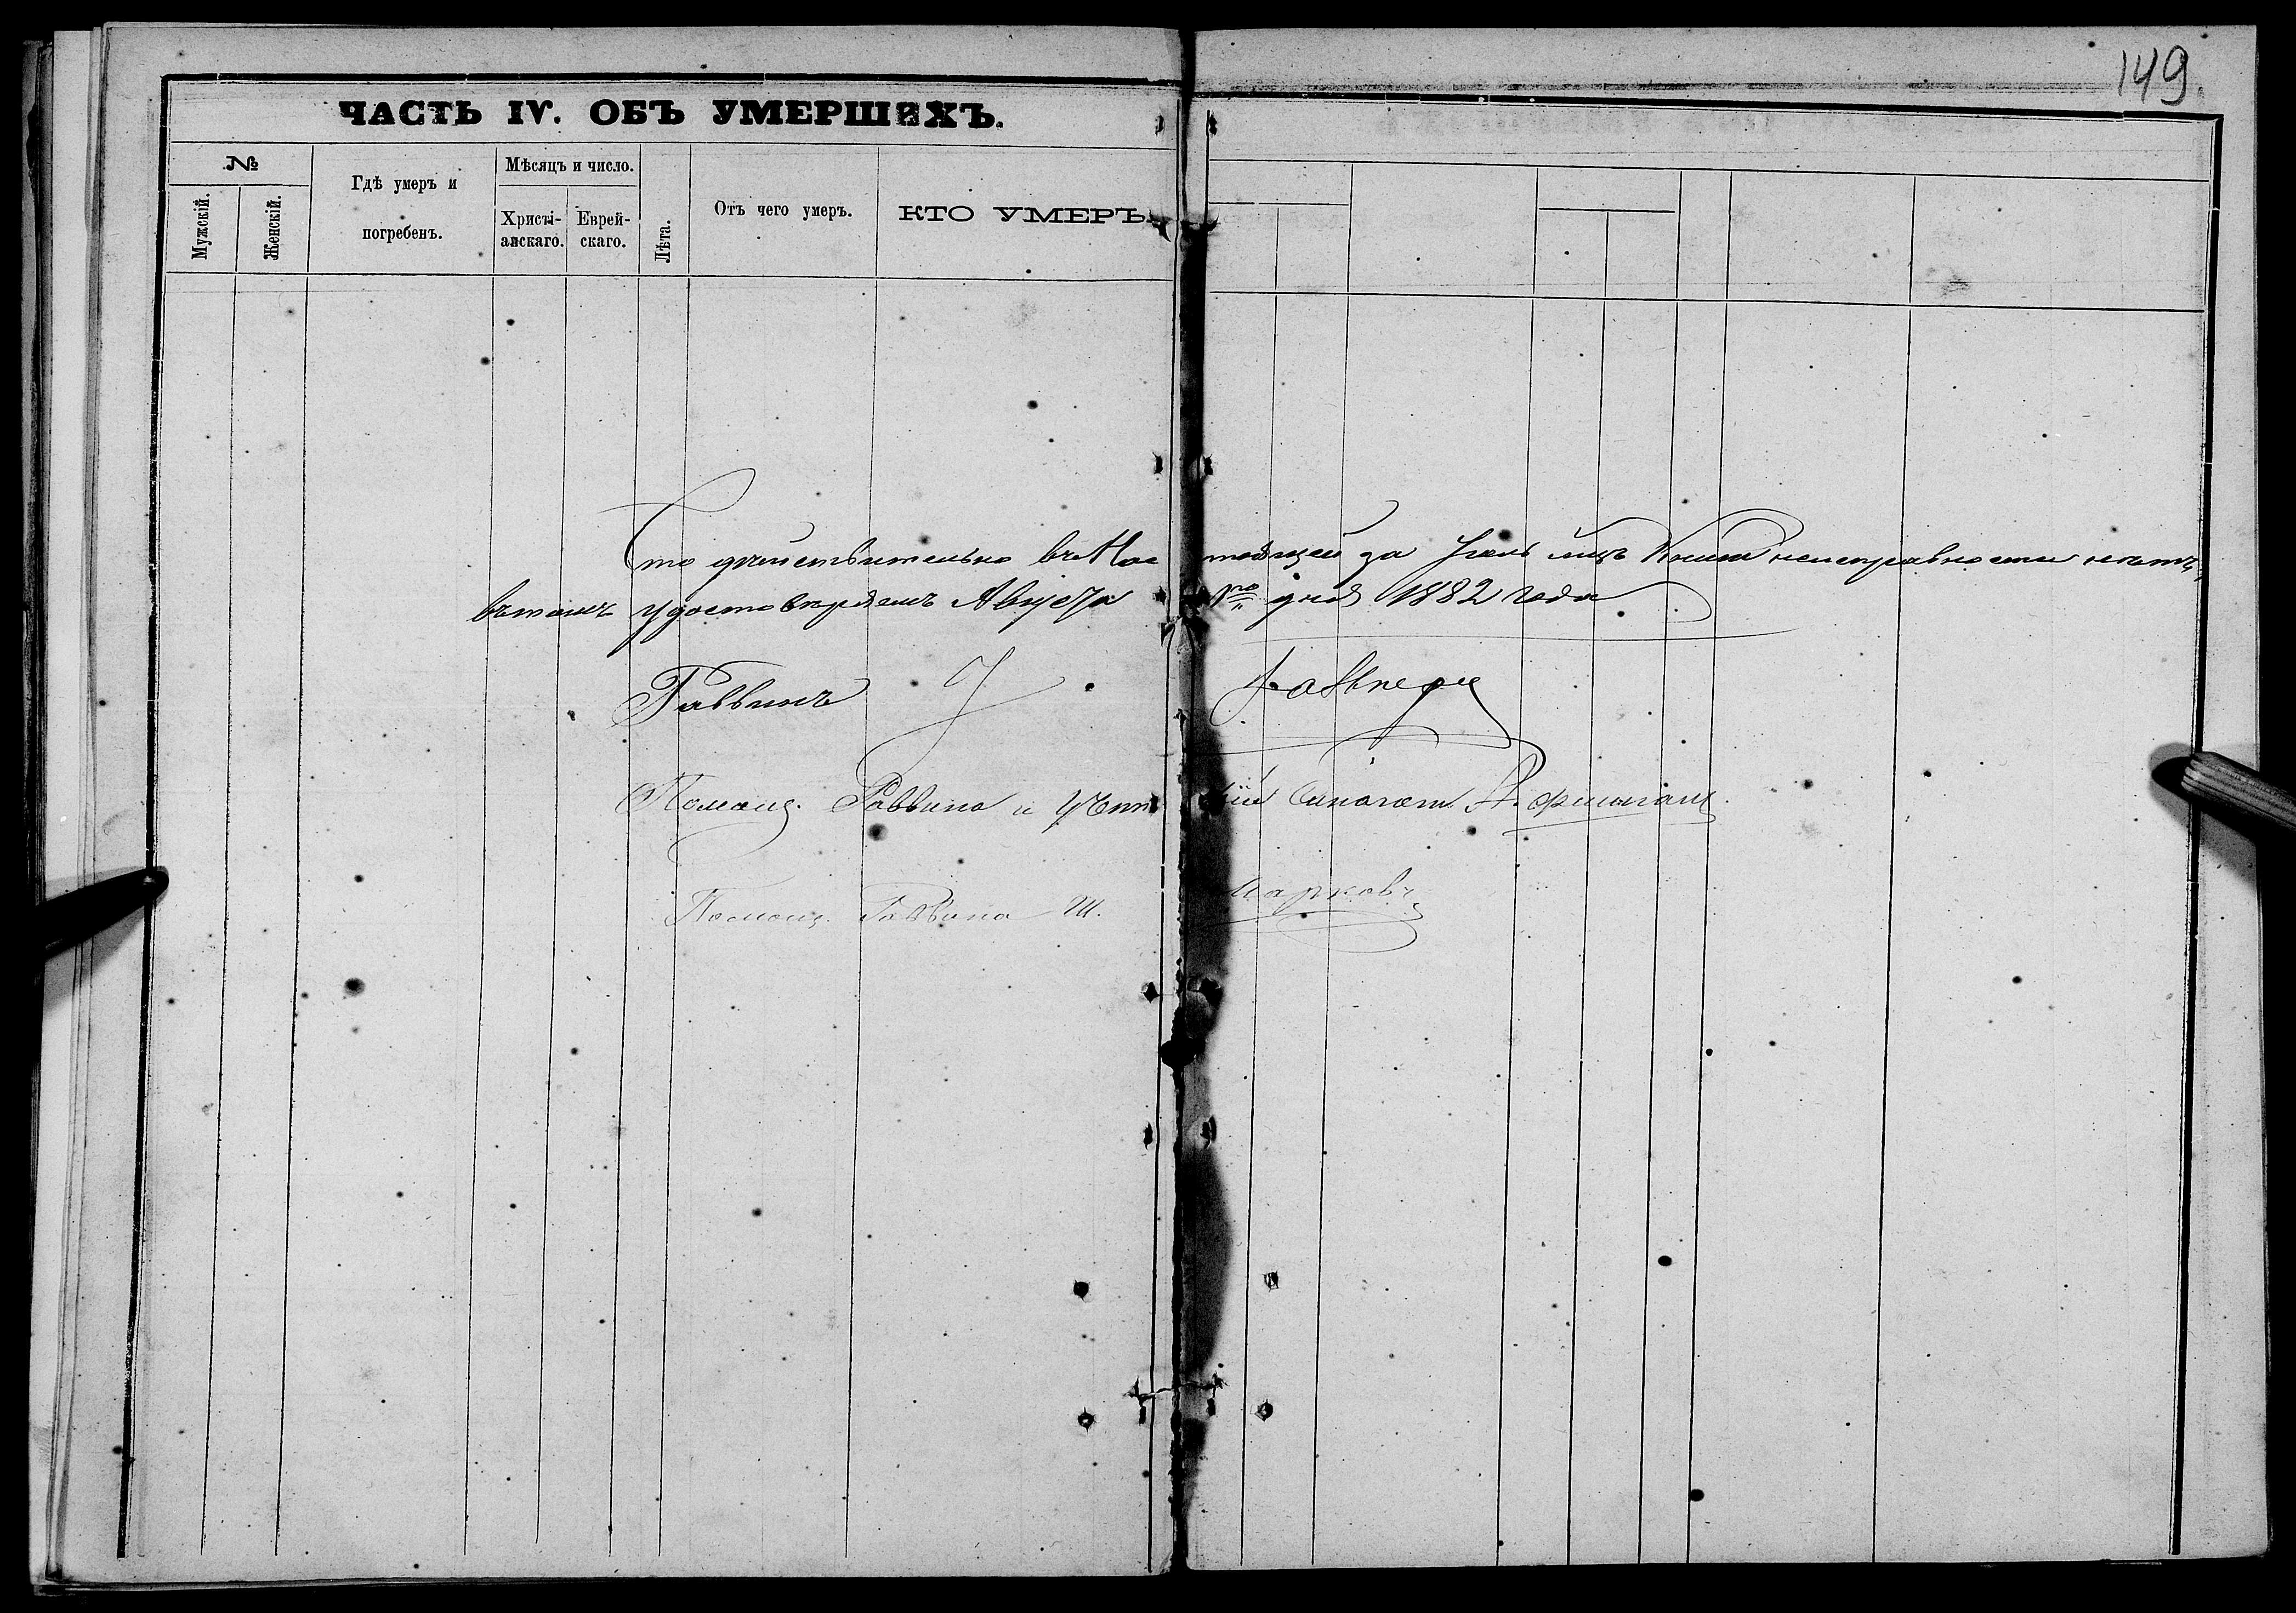 149
ЧАСТЬ IV. ОБЪ УМЕРШИХЪ.
№
Мужскій.
Женскій.
Гдѣ умеръ и
погребенъ.
Мѣсяцъ и число.
Христі-
анскаго.
Еврей-
скаго.
Лѣта.
Отъ чего умеръ.
КТО УМЕРЪ.
Что дѣйствительно въ Настоящей за Іюль мцъ Книги неисправности нѣтъ,
въ томъ удостовѣряемъ Августа 1го дня 1882 года
Раввинъ
Помощ. Раввина и
Помощ. Раввина М. Марковъ